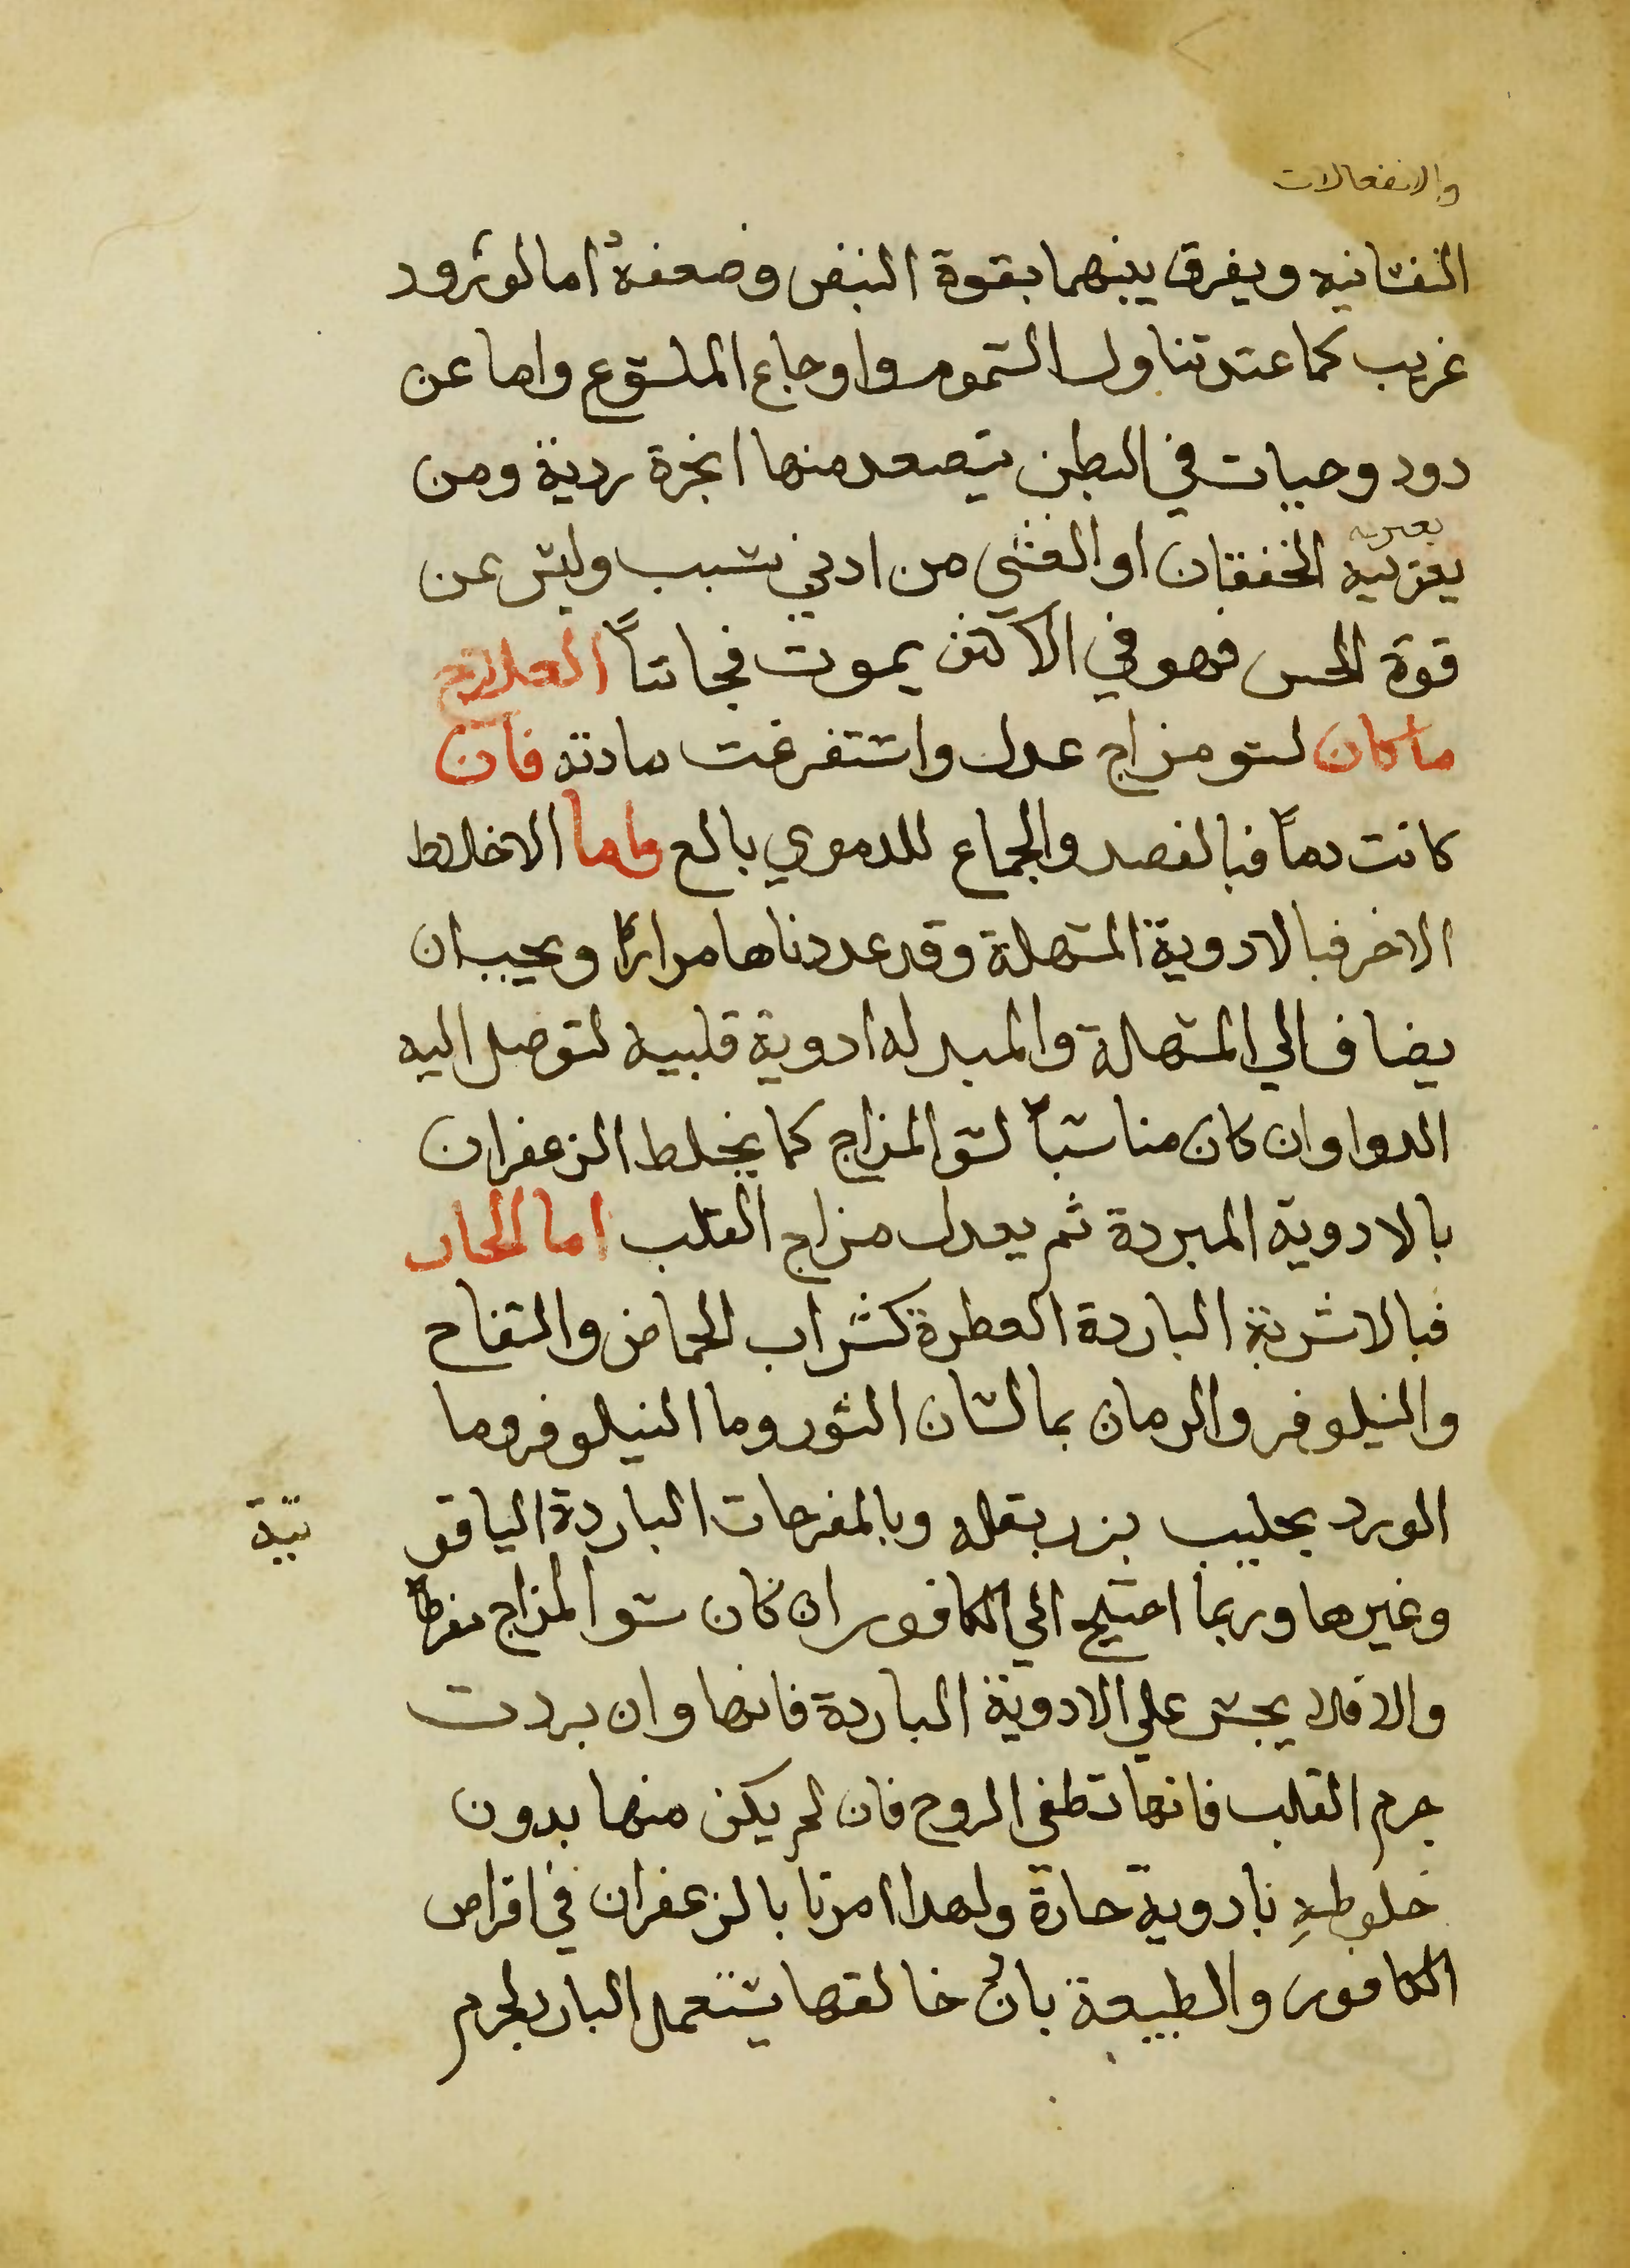 والانفعالات
النفسانيه ويفرق بينهما بقوة النبض وضعفهُ اما لورود
غريب كما عند تناول السموم واوجاع الملسوع واما عن
دود وحيات في البطن يتصعد منها ابخرة ردية ومن
يعتريه
يعتريه الخفقان او الغشي من ادني سبب وليس عن
قوة الحس فهو في الاكثر يموت فجاتاً العلاج
ماكان لسو مزاج عدل واستفرغت مادته فان
كانت دماً فبالفصد والجماع للدموي بالع واما الاخلاط
الاخر فبالادوية المسهلة وقد عددناها مراراً ويجب ان
يضاف الي المسهلة والمبدله ادوية قلبيه لتوصل اليه
الدوا وان كان مناسباً لسو المزاج كما يخلط الزعفران
بالادوية المبردة ثم يعدل مزاج القلب اما الحار
فبالاشربة الباردة العطرة كشراب الحماض والتفاح
والنيلوفر والرمان بما لسان الثور وما النيلوفر وما
الورد بحليب بزر بقله وبالمفرحات الباردة الياقو
تية
وغيرها وربما احتيج الي الكافور ان كان سو المزاج مفرطاً
والا فلا يجسر علي الادوية الباردة فانها وان بردت
جرم القلب فانها تطفي الروح فان لم يكن منها بدون
خلوطهِ بادوية حارة ولهدا امرنا بالزعفران في اقراص
الكافور والطبيعة بان خالقها يستعمل البارد لجرم